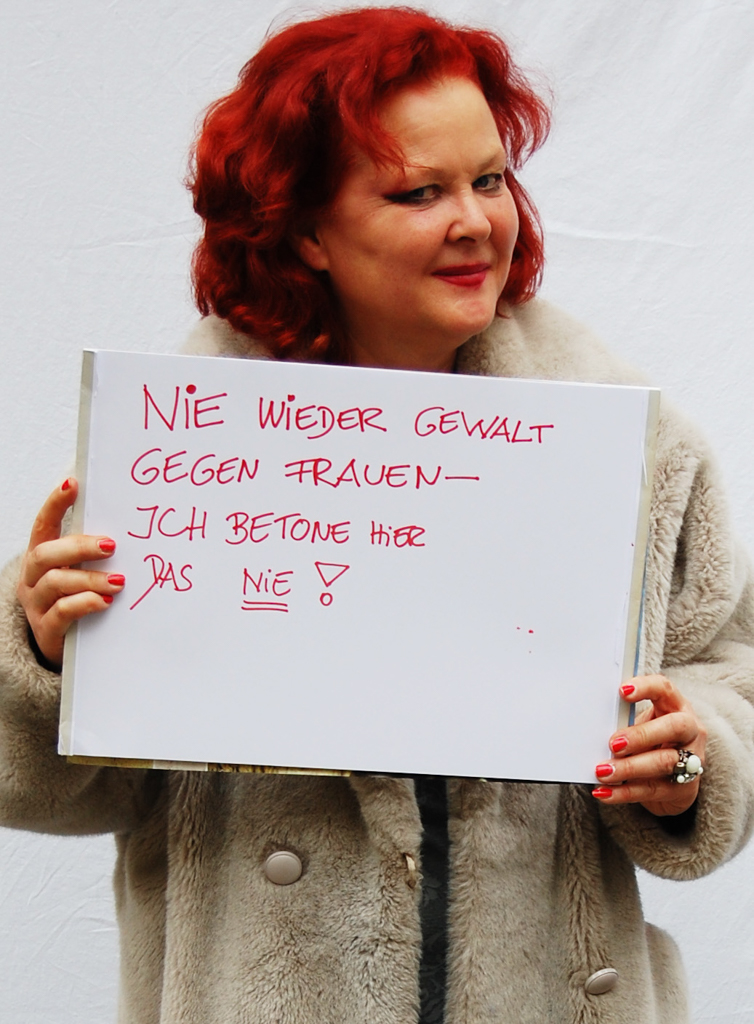 NIE WIEDER GEWALT
GEGEN FRAUEN—
ICH BETONE HIER
DAS NIE!